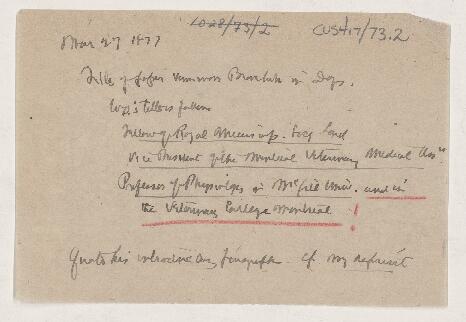 1028/73/2
CUS417/73.2
Mar 27 1877
Title of paper Verminous Bronchitis in Dogs.
Wm's titles follow
Fellow of Royal Micros. Soc. Lond
Vice President of the Montreal Veterinary Medical Assn
Professor of Physiology in McGill Univ. and in
the Veterinary College Montreal !
Quote his introductory paragraph cf my reprint